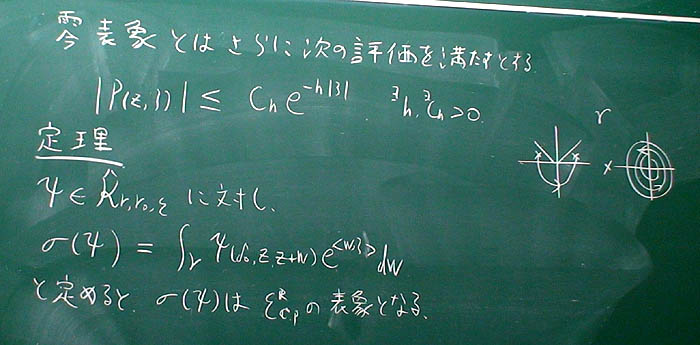 零表象とはさらに次の評価を満たすとする.
|P(z,ζ)| ≤ C_h e^{-h|ζ|} ∃h, ∃C_h > 0.
定理
ψ ∈ K̂_{r,r_0,ε} に対し,
σ(ψ) = ∫_γ ψ(z, z+w) e^{<w,ζ>} dw
と定めると, σ(ψ)は ε^R の表象となる.
γ